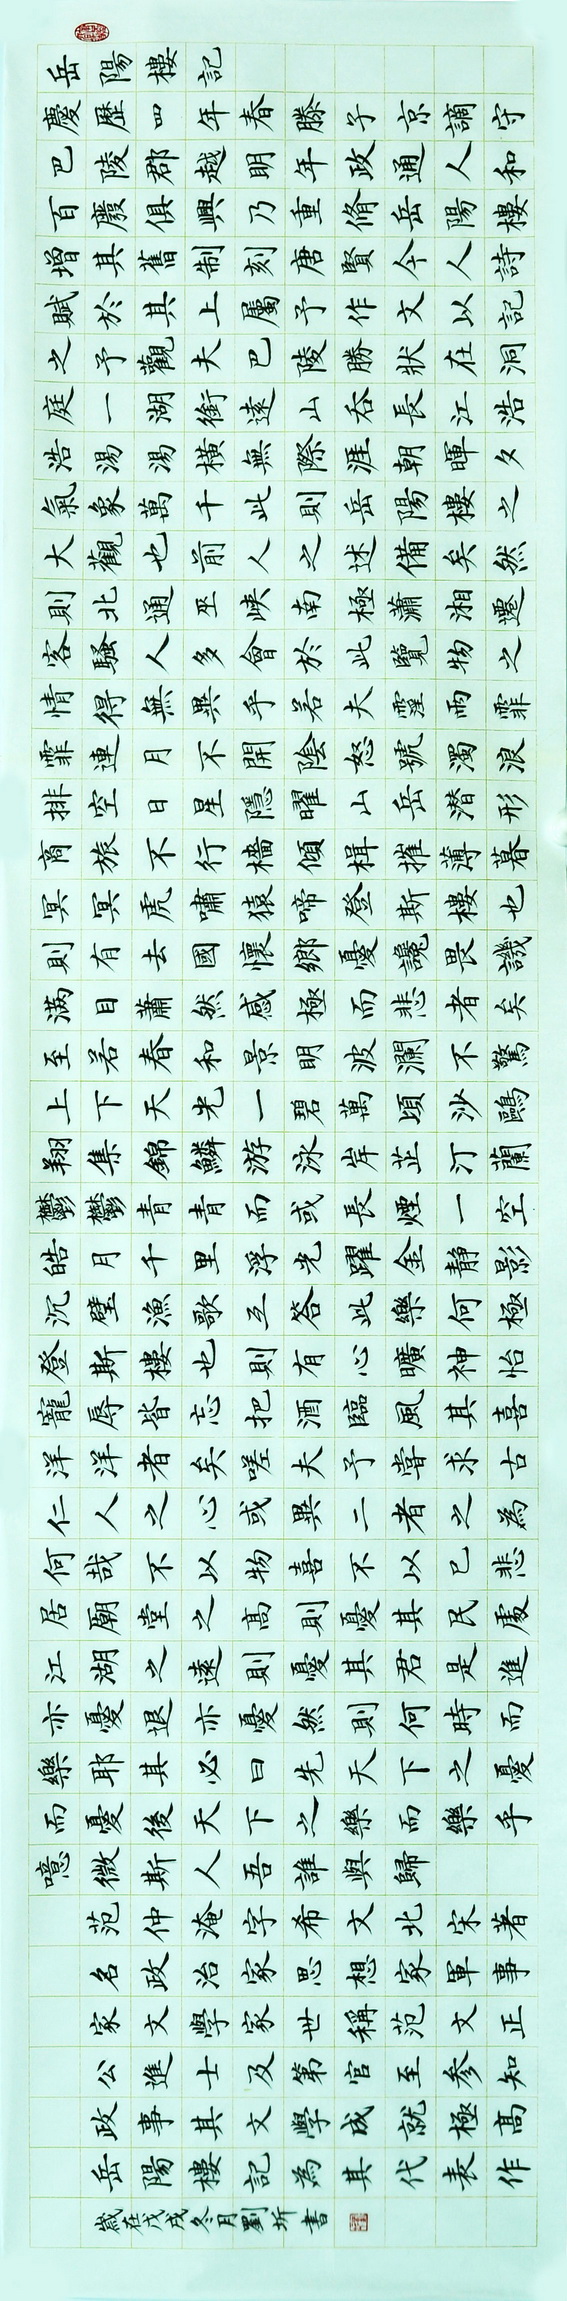 岳陽樓記
慶歷四年春滕子京謫守
巴陵郡越明年政通人和
百廢俱興乃重脩岳陽樓
增其舊制刻唐賢今人詩
賦於其上屬予作文以記
之予觀夫巴陵勝狀在洞
庭一湖銜遠山吞長江浩
浩湯湯橫無際涯朝暉夕
氣象萬千此則岳陽樓之
大觀也前人之述備矣然
則北通巫峽南極瀟湘遷
客騷人多會於此覽物之
情得無異乎若夫霪雨霏
霏連月不開陰怒號濁浪
排空日星隱曜山岳潛形
商旅不行檣傾楫摧薄暮
冥冥虎嘯猿啼登斯樓也
則有去國懷鄉憂讒畏譏
滿目蕭然感極而悲者矣
至若春和景明波瀾不驚
上下天光一碧萬頃沙鷗
翔集錦鱗游泳岸芷汀蘭
鬱鬱青青而或長煙一空
皓月千里浮光躍金靜影
沉璧漁歌互答此樂何極
登斯樓也則有心曠神怡
寵辱皆忘把酒臨風其喜
洋洋者矣嗟夫予嘗求古
仁人之心或異二者之為
何哉不以物喜不以己悲
居廟堂之高則憂其民處
江湖之遠則憂其君是進
亦憂退亦憂然則何時而
樂耶其必曰先天下之憂
而憂後天下之樂而樂乎
噫微斯人吾誰與歸
范仲淹字希文北宋著
名政治家思想家軍事
家文學家世稱范文正
公進士及第官至參知
政事其文學成就極高
岳陽樓記為其代表作
歲在戊戌冬月劉圻書